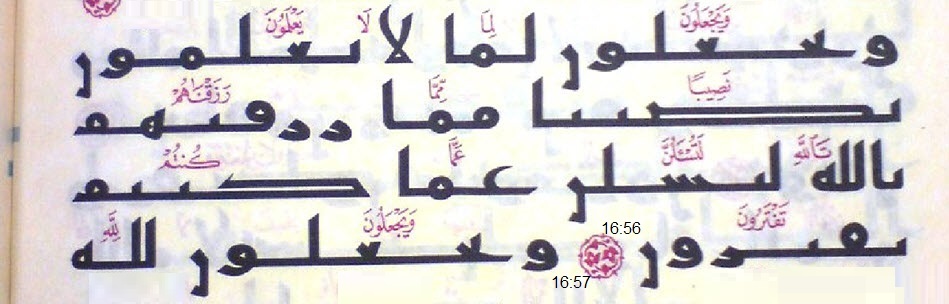 وَيَجْعَلُونَ لِمَا لَا يَعْلَمُونَ
وىحعلوں لما لا ىعلموں
نَصِيبًا مِّمَّا رَزَقْنَاهُمْ
ىصىىا مما ررڡىهم
تَاللَّهِ لَتُسْـَٔلُنَّ عَمَّا كُنتُمْ
ىالله لىسلں عما كىىم
تَفْتَرُونَ 16:56 وَيَجْعَلُونَ لِلَّهِ
ىڡىروں وىحعلوں لله
16:57